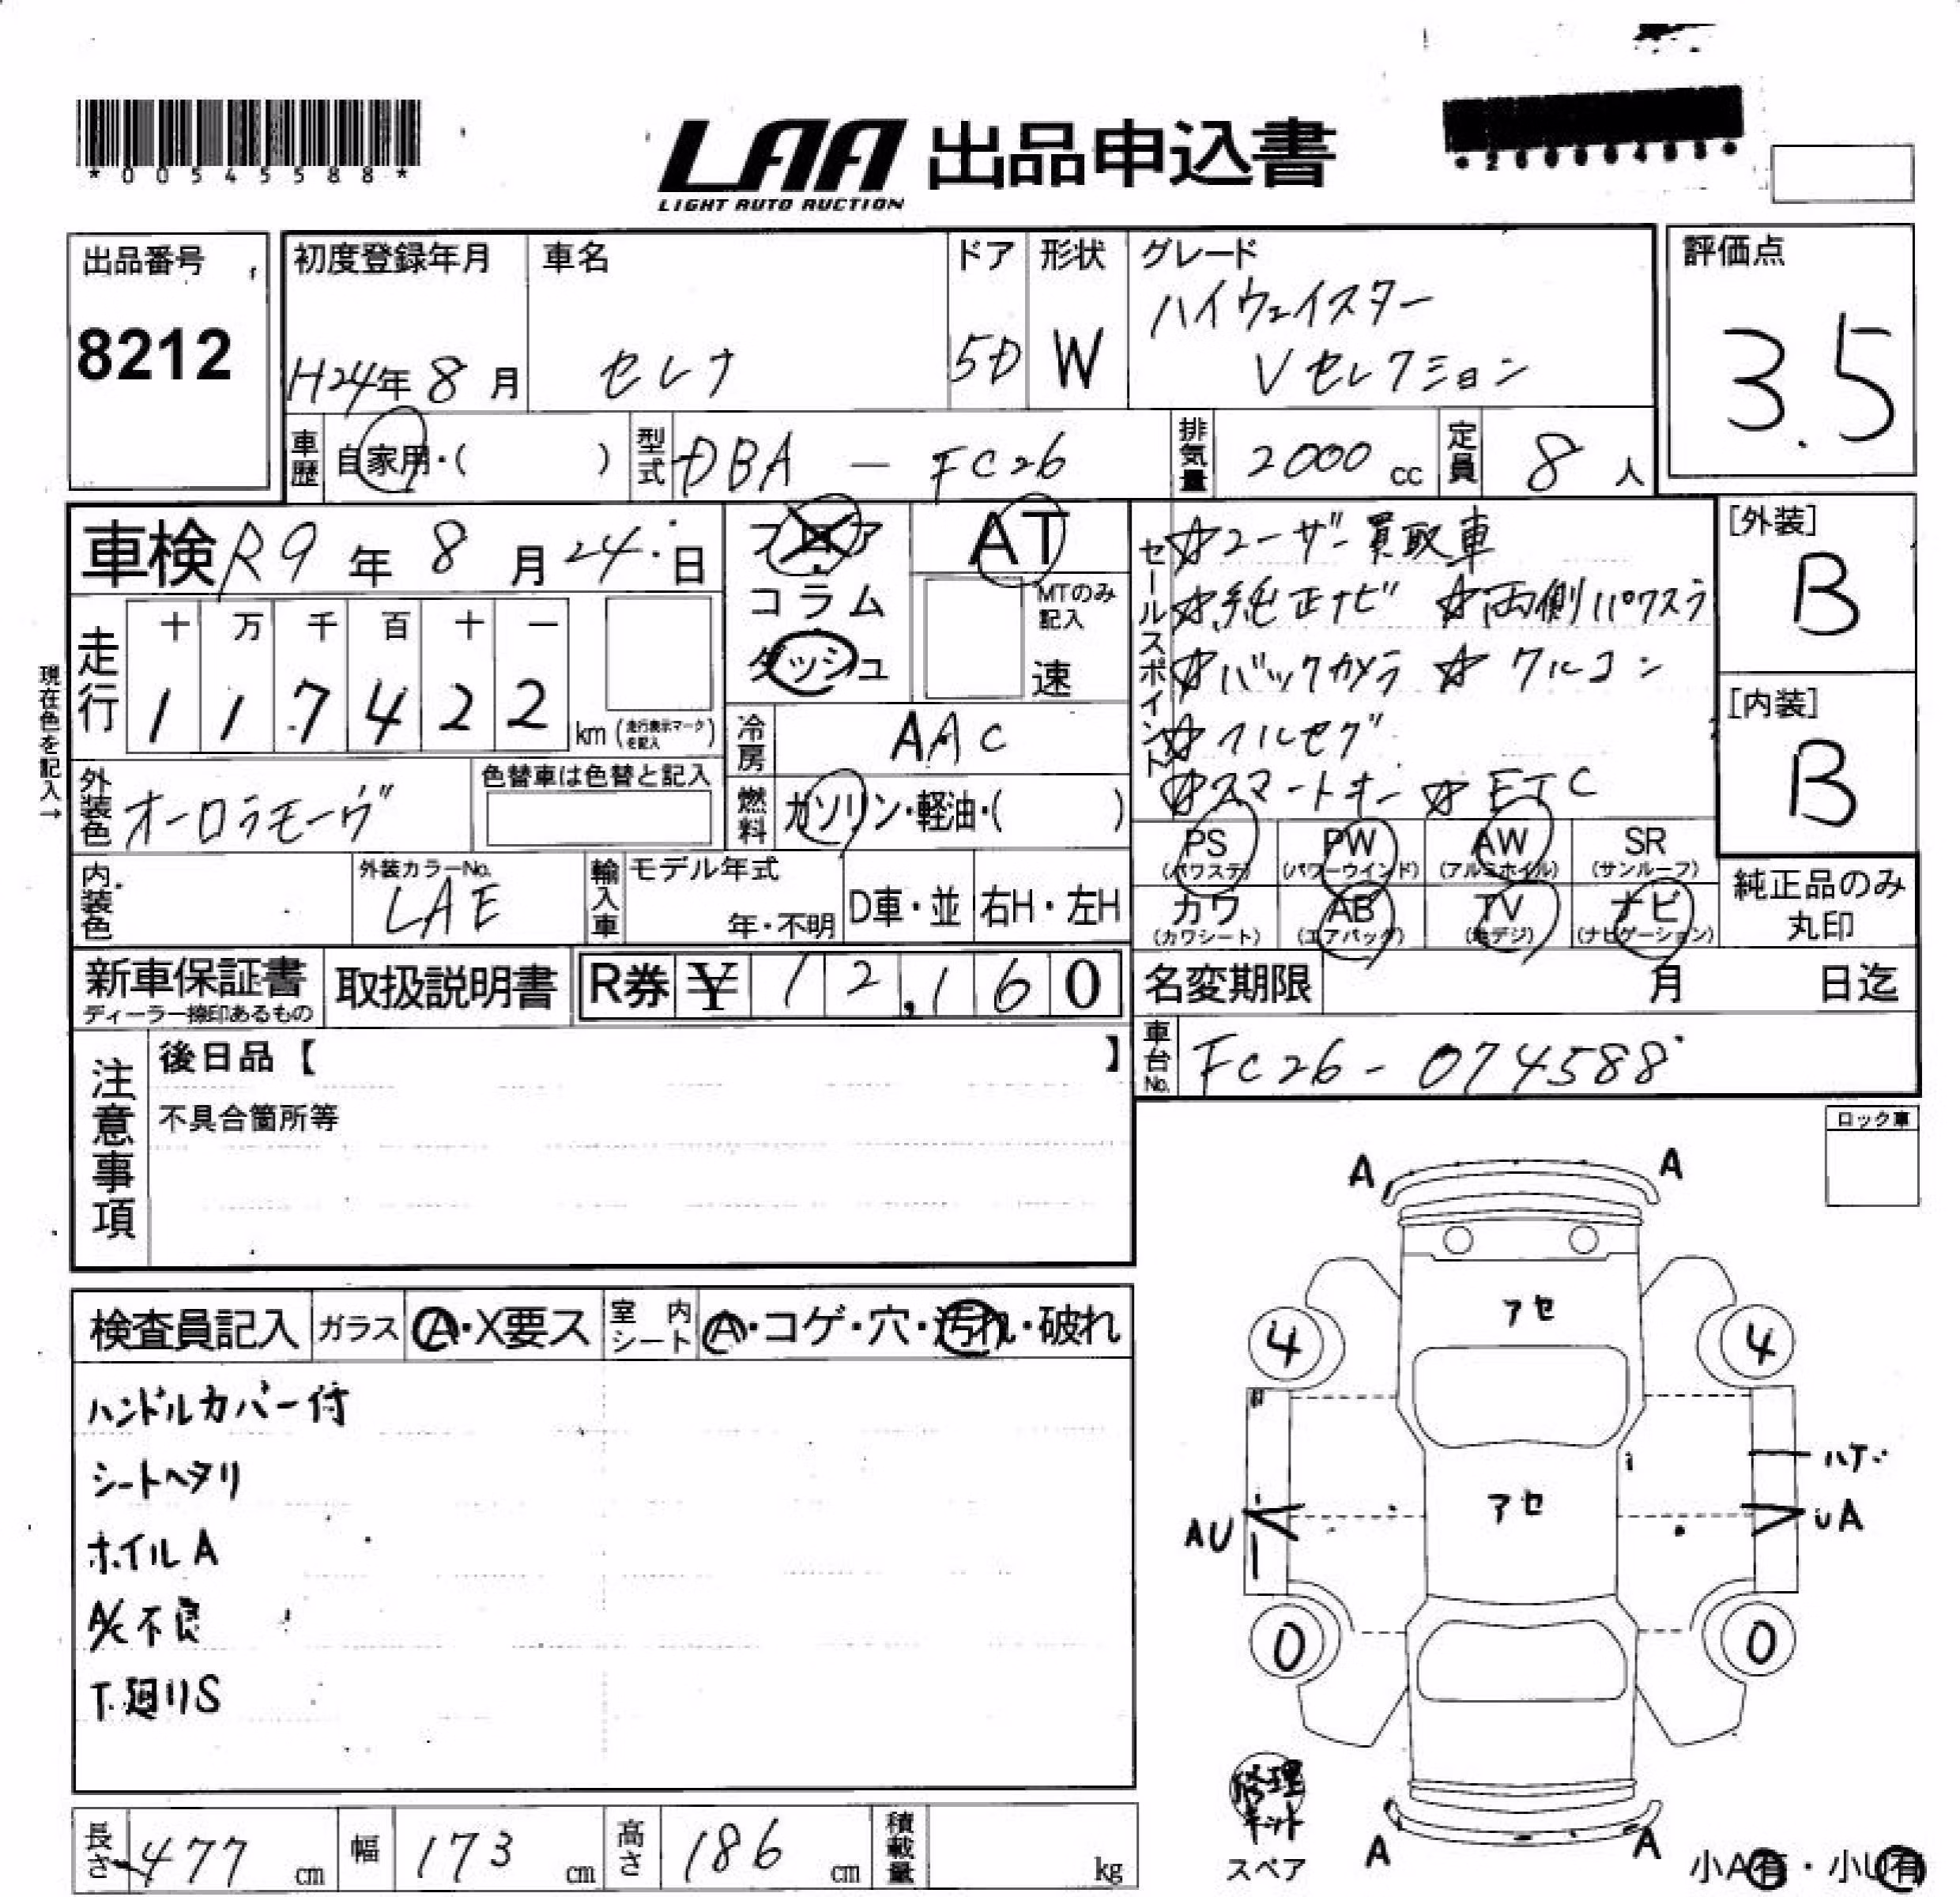 *00545588*
LAA 出品申込書
LIGHT AUTO AUCTION
出品番号
8212
初度登録年月
H24年8月
車名
セレナ
ドア
5D
形状
W
グレード
ハイウェイスター
Vセレクション
評価点
3.5
車歴
自家用・( )
型式
DBA - FC26
排気量
2000 cc
定員
8 人
車検 R9年8月24日
フロア
コラム
ダッシュ
AT
MTのみ記入
速
セールスポイント
☆ユーザー買取車
☆純正ナビ ☆両側パワスラ
☆バックカメラ ☆クルコン
☆フルセグ
☆スマートキー ☆ETC
[外装]
B
[内装]
B
現在色を記入→
走行
十 万 千 百 十 一
1 1 7 4 2 2 km (走行表示マークを記入)
冷房
AAC
外装色
オーロラモーヴ
色替車は色替と記入
燃料
ガソリン・軽油・( )
PS (パワステ)
PW (パワーウインド)
AW (アルミホイル)
SR (サンルーフ)
カワ (カワシート)
AB (エアバッグ)
TV (地デジ)
ナビ (ナビゲーション)
純正品のみ
丸印
内装色
外装カラーNo.
LAE
輸入車
モデル年式
年・不明
D車・並
右H・左H
新車保証書
ディーラー捺印あるもの
取扱説明書
R券 ¥ 12,160
名変期限 月 日迄
車台No.
FC26-074588
注意事項
後日品【 】
不具合箇所等
ロック車
検査員記入
ガラス
A・X要ス
室内シート
A・コゲ・穴・汚れ・破れ
ハンドルカバー付
シートヘタリ
ホイルA
A/C不良
下廻りS
A A
アセ
4 4
ハゲ
アセ
AU UA
0 0
修理
キット
スペア
A A
小A有・小U有
長さ 477 cm
幅 173 cm
高さ 186 cm
積載量 kg